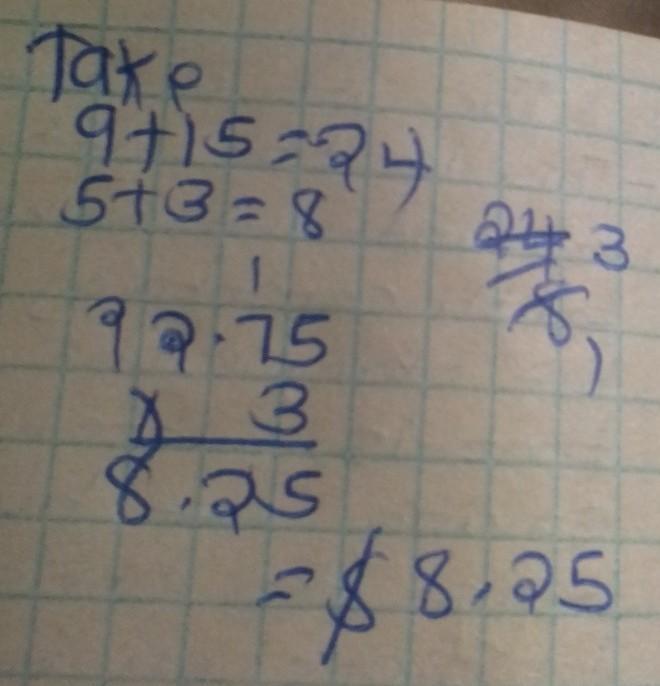 Take
9+15=24
5+3=8
24 3
8 1
1
22.75
x 3
8.25
=$8.25